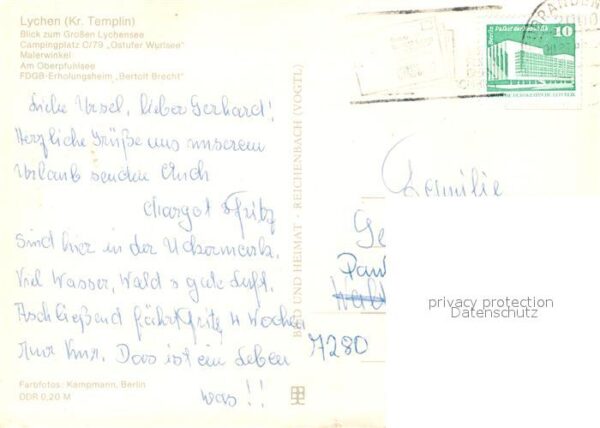 Lychen (Kr. Templin)
Blick zum Großen Lychensee
Campingplatz C/79 „Ostufer Wurlsee"
Malerwinkel
Am Oberpfuhlsee
FDGB-Erholungsheim „Bertolt Brecht"
Liebe Ursel, lieber Gerhard!
Herzliche Grüße aus unserem
Urlaub senden Euch
Margot + Fritz
Sind hier in der Uckermark.
Viel Wasser, Wald + gute Luft.
Aschließend fährt Fritz 4 Wochen
zur Kur. Das ist ein Leben
was!!
Farbfotos: Kampmann, Berlin
DDR 0,20 M
BILD UND HEIMAT · REICHENBACH (VOGTL)
BRANDEN
10
Familie
Ge
Pau
Wald
7280
privacy protection
Datenschutz